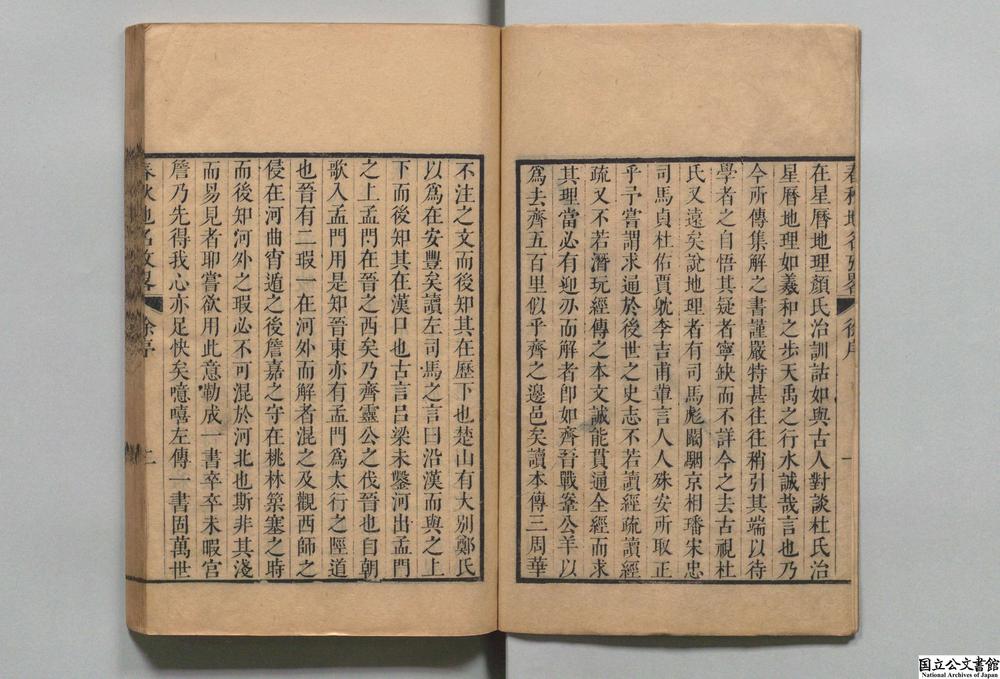 春秋地名攷畧
徐序
一
在星曆地理顏氏治訓詁如與古人對談杜氏治
星曆地理如羲和之步天禹之行水誠哉言也乃
今所傳集解之書謹嚴特甚往往稍引其端以待
學者之自悟其疑者寧缺而不詳今之去古視杜
氏又遠矣說地理者有司馬彪闞駰京相璠宋忠
司馬貞杜佑賈躭李吉甫軰言人人殊安所取正
乎予嘗謂求通於後世之史志不若讀經疏讀經
疏又不若潛玩經傳之本文誠能貫通全經而求
其理當必有迎刃而解者卽如齊晉戰鞌公羊以
爲去齊五百里似乎齊之邊邑矣讀本傳三周華
不注之文而後知其在歷下也楚山有大别鄭氏
以爲在安豐矣讀左司馬之言曰沿漢而與之上
下而後知其在漢口也古言呂梁未鑿河出孟門
之上孟門在晉之西矣乃齊靈公之伐晉也自朝
歌入孟門用是知晉東亦有孟門爲太行之陘道
也晉有二瑕一在河外而解者混之及觀西師之
侵在河曲宵遁之後詹嘉之守在桃林築塞之時
而後知河外之瑕必不可混於河北也斯非其淺
而易見者耶嘗欲用此意勒成一書卒卒未暇宫
詹乃先得我心亦足快矣噫嘻左傳一書固萬世
春秋地名攷畧
徐序
二
国立公文書館
National Archives of Japan